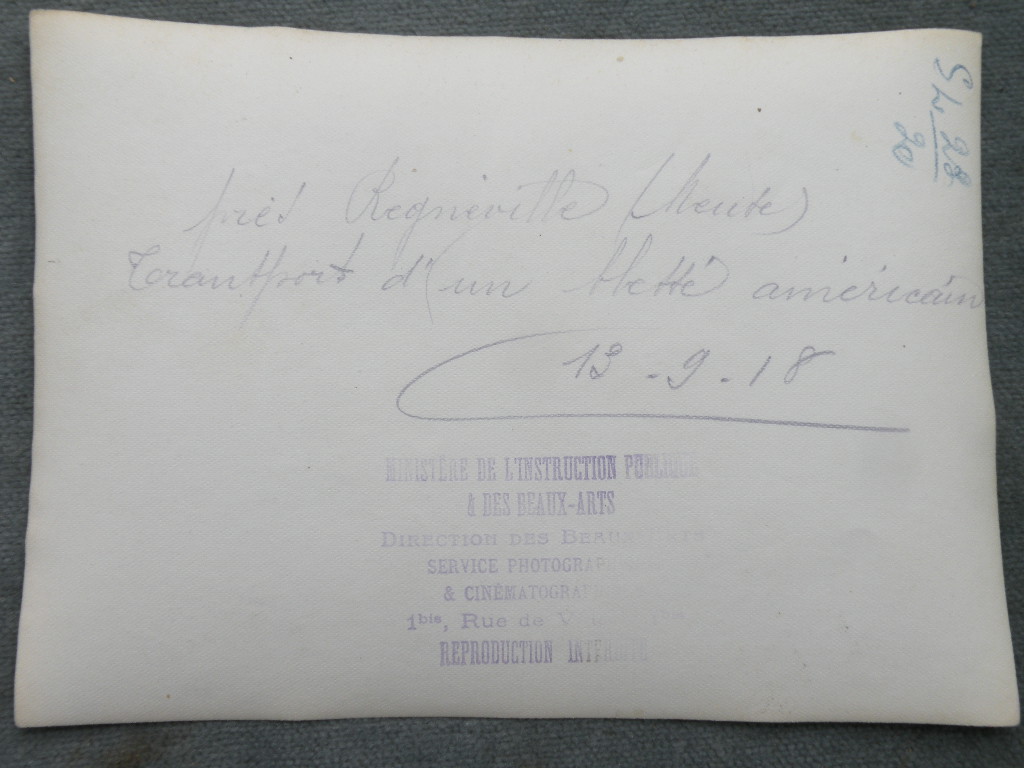 près Régnieville (Meuse)
Transport d'un blessé américain
13-9-18
SL 28
20
MINISTÈRE DE L'INSTRUCTION PUBLIQUE
& DES BEAUX-ARTS
DIRECTION DES BEAUX-ARTS
SERVICE PHOTOGRAP
& CINÉMATOGRA
1bis, Rue de V
REPRODUCTION INTERDITE